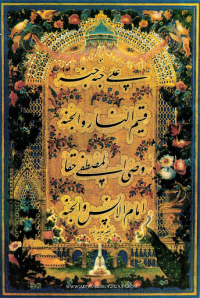 علی حبه جنة
قسیم النار و الجنة
وصی المصطفی حقا
امام الانس و الجنة